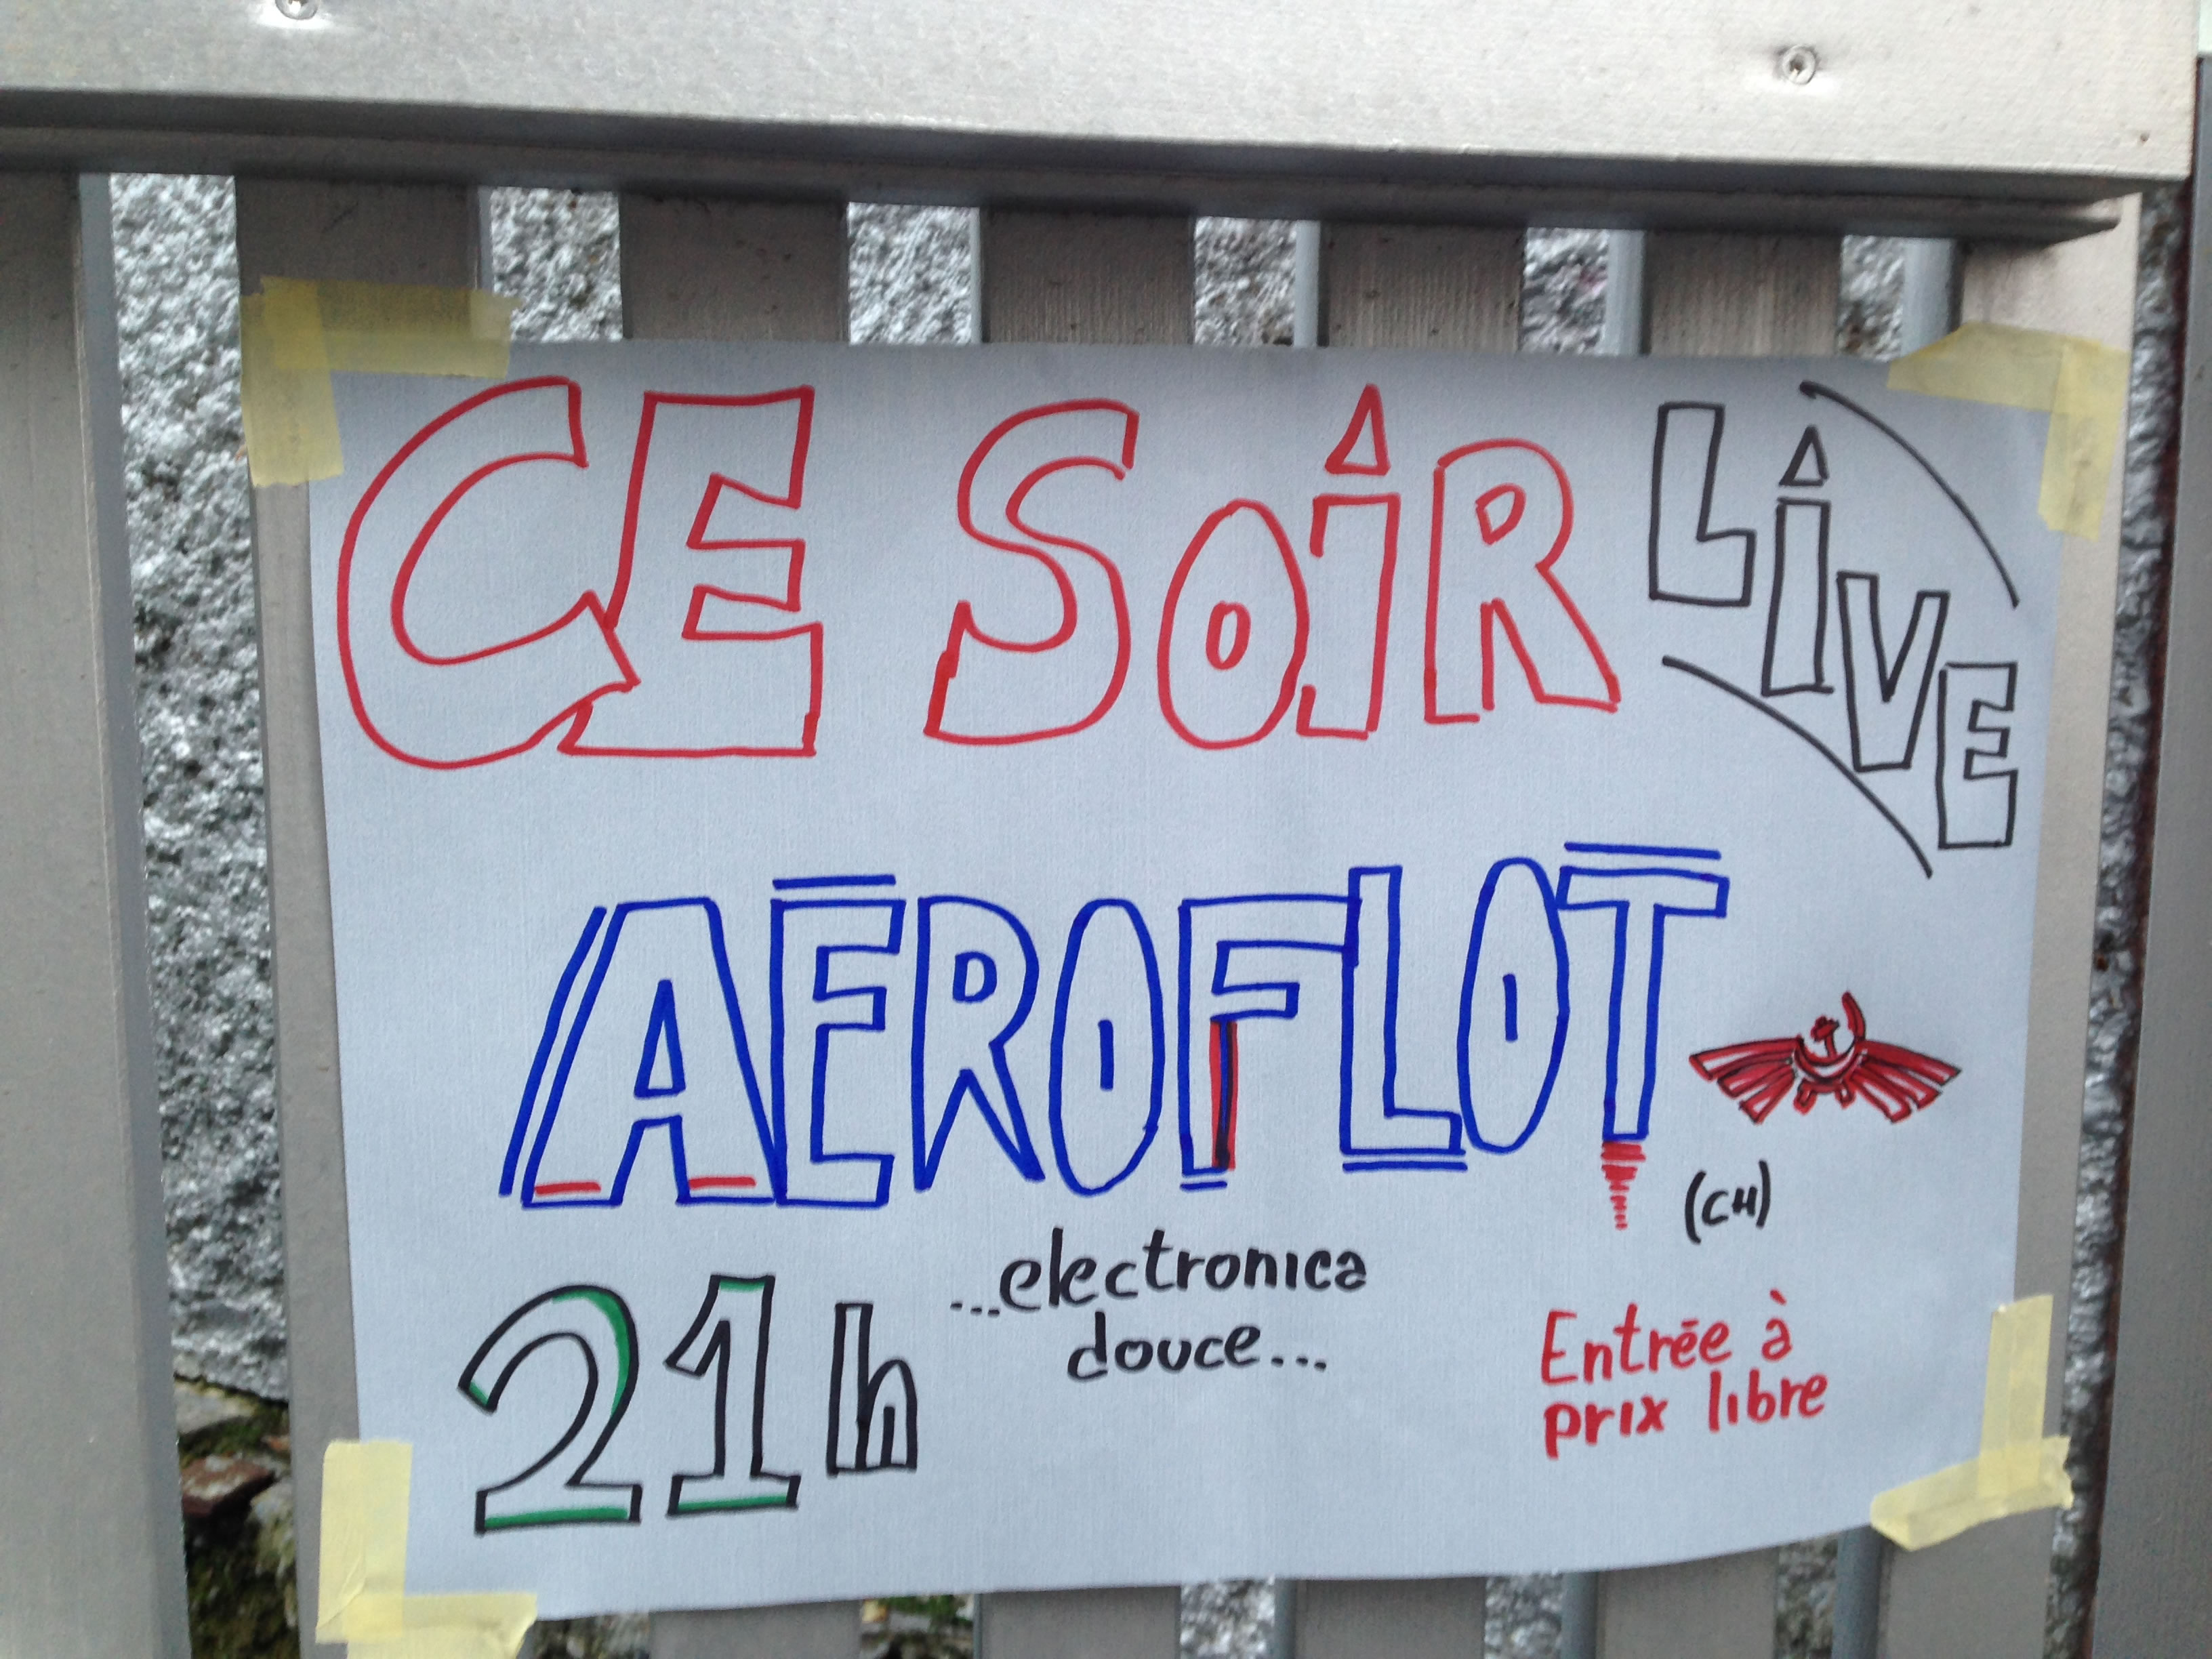 CE SOiR
LiVE
AEROFLOT
(CH)
...electronica
douce...
21h
Entrée à
prix libre